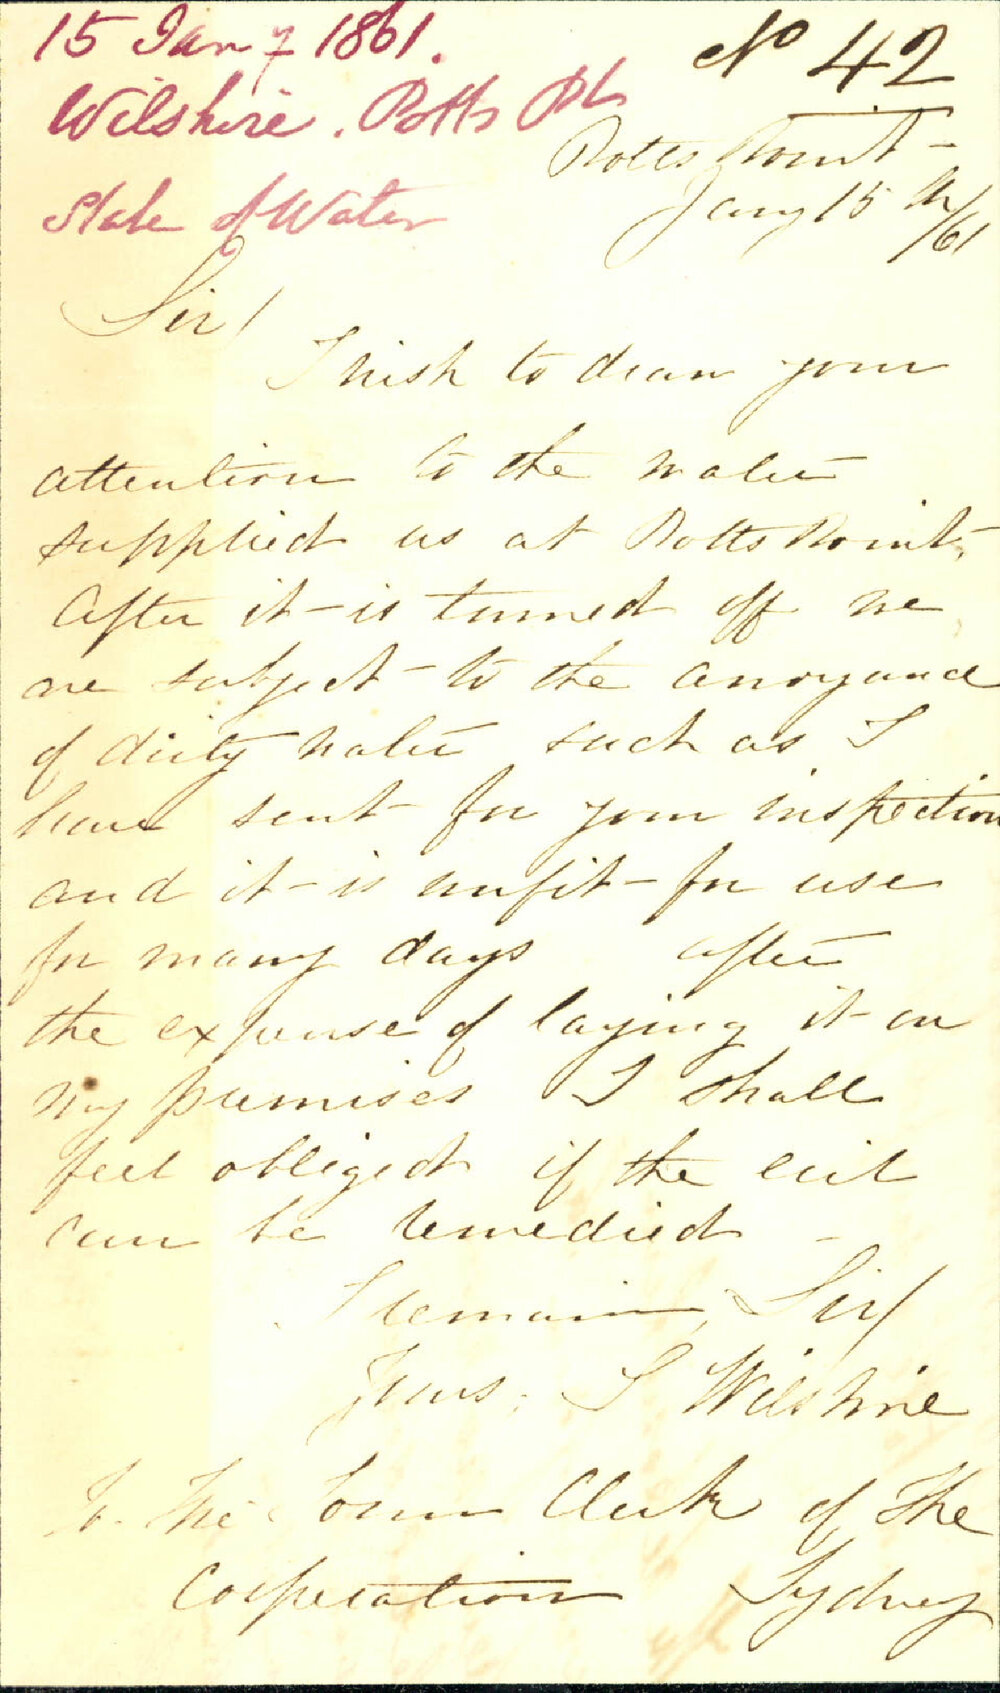 15 Jany 1861.
Wilshire. Potts Pt
State of Water
No 42
Potts Point -
Jany 15th/61
Sir/
I wish to draw your
attention to the water
supplied us at Potts Point,
After it - is turned off we
are subject - to the anoyance
of dirty water such as I
have sent for your inspection
and it - is unfit - for use
for many days after
the expense of laying it on
my premises I shall
feel obliged if the evil
can be remedied -
I remain, Sir/
Yours, J Wilshire
To The Town Clerk of The
Corporation Sydney